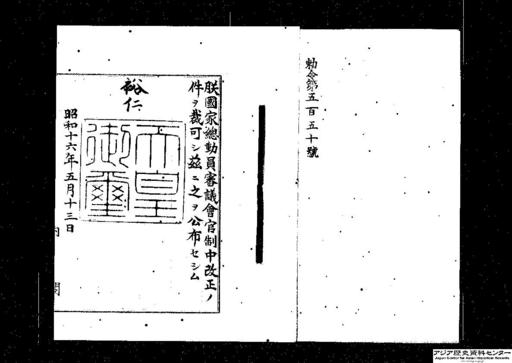 勅令第五百五十號
朕國家總動員審議會官制中改正ノ
件ヲ裁可シ茲ニ之ヲ公布セシム
裕仁
天皇
御璽
昭和十六年五月十三日
内閣
アジア歴史資料センター
Japan Center for Asian Historical Records